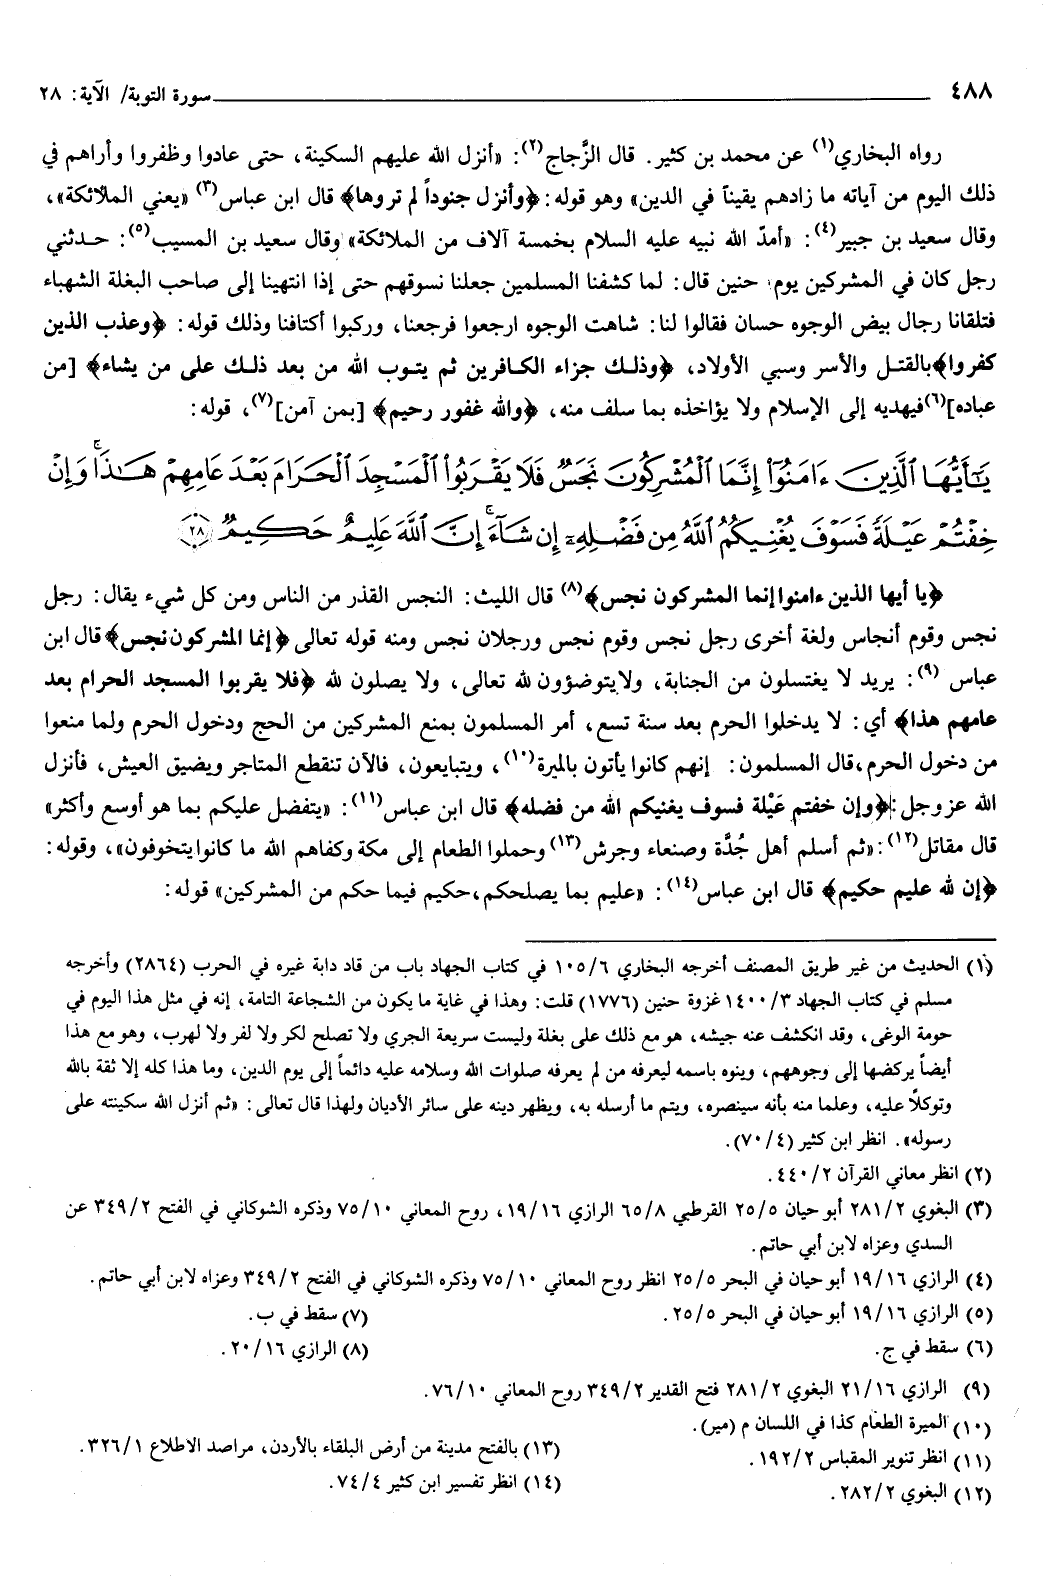 ٤٨٨ سورة التوبة/ الآية: ٢٨
رواه البخاري(١) عن محمد بن كثير. قال الزَّجاج(٢): «أنزل الله عليهم السكينة، حتى عادوا وظفروا وأراهم في
ذلك اليوم من آياته ما زادهم يقيناً في الدين» وهو قوله: ﴿وأنزل جنوداً لم تروها﴾ قال ابن عباس(٣) «يعني الملائكة»،
وقال سعيد بن جبير(٤): «أمدّ الله نبيه عليه السلام بخمسة آلاف من الملائكة» وقال سعيد بن المسيب(٥): حدثني
رجل كان في المشركين يوم حنين قال: لما كشفنا المسلمين جعلنا نسوقهم حتى إذا انتهينا إلى صاحب البغلة الشهباء
فتلقانا رجال بيض الوجوه حسان فقالوا لنا: شاهت الوجوه ارجعوا فرجعنا، وركبوا أكتافنا وذلك قوله: ﴿وعذب الذين
كفروا﴾ بالقتل والأسر وسبي الأولاد، ﴿وذلك جزاء الكافرين ثم يتوب الله من بعد ذلك على من يشاء﴾ [من
عباده](٦) فيهديه إلى الإسلام ولا يؤاخذه بما سلف منه، ﴿والله غفور رحيم﴾ [بمن آمن](٧)، قوله:
يَٰٓأَيُّهَا ٱلَّذِينَ ءَامَنُوٓا۟ إِنَّمَا ٱلْمُشْرِكُونَ نَجَسٌ فَلَا يَقْرَبُوا۟ ٱلْمَسْجِدَ ٱلْحَرَامَ بَعْدَ عَامِهِمْ هَٰذَا ۚ وَإِنْ
خِفْتُمْ عَيْلَةً فَسَوْفَ يُغْنِيكُمُ ٱللَّهُ مِن فَضْلِهِۦٓ إِن شَآءَ ۚ إِنَّ ٱللَّهَ عَلِيمٌ حَكِيمٌ ﴿٢٨﴾
﴿يا أيها الذين ءامنوا إنما المشركون نجس﴾(٨) قال الليث: النجس القذر من الناس ومن كل شيء يقال: رجل
نجس وقوم أنجاس ولغة أخرى رجل نجس وقوم نجس ورجلان نجس ومنه قوله تعالى ﴿إنما المشركون نجس﴾ قال ابن
عباس (٩): يريد لا يغتسلون من الجنابة، ولا يتوضؤون لله تعالى، ولا يصلون لله ﴿فلا يقربوا المسجد الحرام بعد
عامهم هذا﴾ أي: لا يدخلوا الحرم بعد سنة تسع، أمر المسلمون بمنع المشركين من الحج ودخول الحرم ولما منعوا
من دخول الحرم، قال المسلمون: إنهم كانوا يأتون بالميرة(١٠)، ويتبايعون، فالآن تنقطع المتاجر ويضيق العيش، فأنزل
الله عز وجل: ﴿وإن خفتم عَيْلة فسوف يغنيكم الله من فضله﴾ قال ابن عباس(١١): «يتفضل عليكم بما هو أوسع وأكثر»
قال مقاتل(١٢): «ثم أسلم أهل جُدَّة وصنعاء وجرش(١٣) وحملوا الطعام إلى مكة وكفاهم الله ما كانوا يتخوفون»، وقوله:
﴿إن لله عليم حكيم﴾ قال ابن عباس(١٤): «عليم بما يصلحكم، حكيم فيما حكم من المشركين» قوله:
(١) الحديث من غير طريق المصنف أخرجه البخاري ١٠٥/٦ في كتاب الجهاد باب من قاد دابة غيره في الحرب (٢٨٦٤) وأخرجه
مسلم في كتاب الجهاد ١٤٠٠/٣ غزوة حنين (١٧٧٦) قلت: وهذا في غاية ما يكون من الشجاعة التامة، إنه في مثل هذا اليوم في
حومة الوغى، وقد انكشف عنه جيشه، هو مع ذلك على بغلة وليست سريعة الجري ولا تصلح لكر ولا لفر ولا لهرب، وهو مع هذا
أيضاً يركضها إلى وجوههم، وينوه باسمه ليعرفه من لم يعرفه صلوات الله وسلامه عليه دائماً إلى يوم الدين، وما هذا كله إلا ثقة بالله
وتوكلاً عليه، وعلما منه بأنه سينصره، ويتم ما أرسله به، ويظهر دينه على سائر الأديان ولهذا قال تعالى: «ثم أنزل الله سكينته على
رسوله». انظر ابن كثير (٧٠/٤).
(٢) انظر معاني القرآن ٤٤٠/٢.
(٣) البغوي ٢٨١/٢ أبو حيان ٢٥/٥ القرطبي ٦٥/٨ الرازي ١٩/١٦، روح المعاني ٧٥/١٠ وذكره الشوكاني في الفتح ٣٤٩/٢ عن
السدي وعزاه لابن أبي حاتم.
(٤) الرازي ١٩/١٦ أبو حيان في البحر ٢٥/٥ انظر روح المعاني ٧٥/١٠ وذكره الشوكاني في الفتح ٣٤٩/٢ وعزاه لابن أبي حاتم.
(٥) الرازي ١٩/١٦ أبو حيان في البحر ٢٥/٥. (٧) سقط في ب.
(٦) سقط في ج. (٨) الرازي ٢٠/١٦.
(٩) الرازي ٢١/١٦ البغوي ٢٨١/٢ فتح القدير ٣٤٩/٢ روح المعاني ٧٦/١٠.
(١٠) الميرة الطعام كذا في اللسان م (مير).
(١١) انظر تنوير المقباس ١٩٢/٢. (١٣) بالفتح مدينة من أرض البلقاء بالأردن، مراصد الاطلاع ٣٢٦/١.
(١٢) البغوي ٢٨٢/٢. (١٤) انظر تفسير ابن كثير ٧٤/٤.